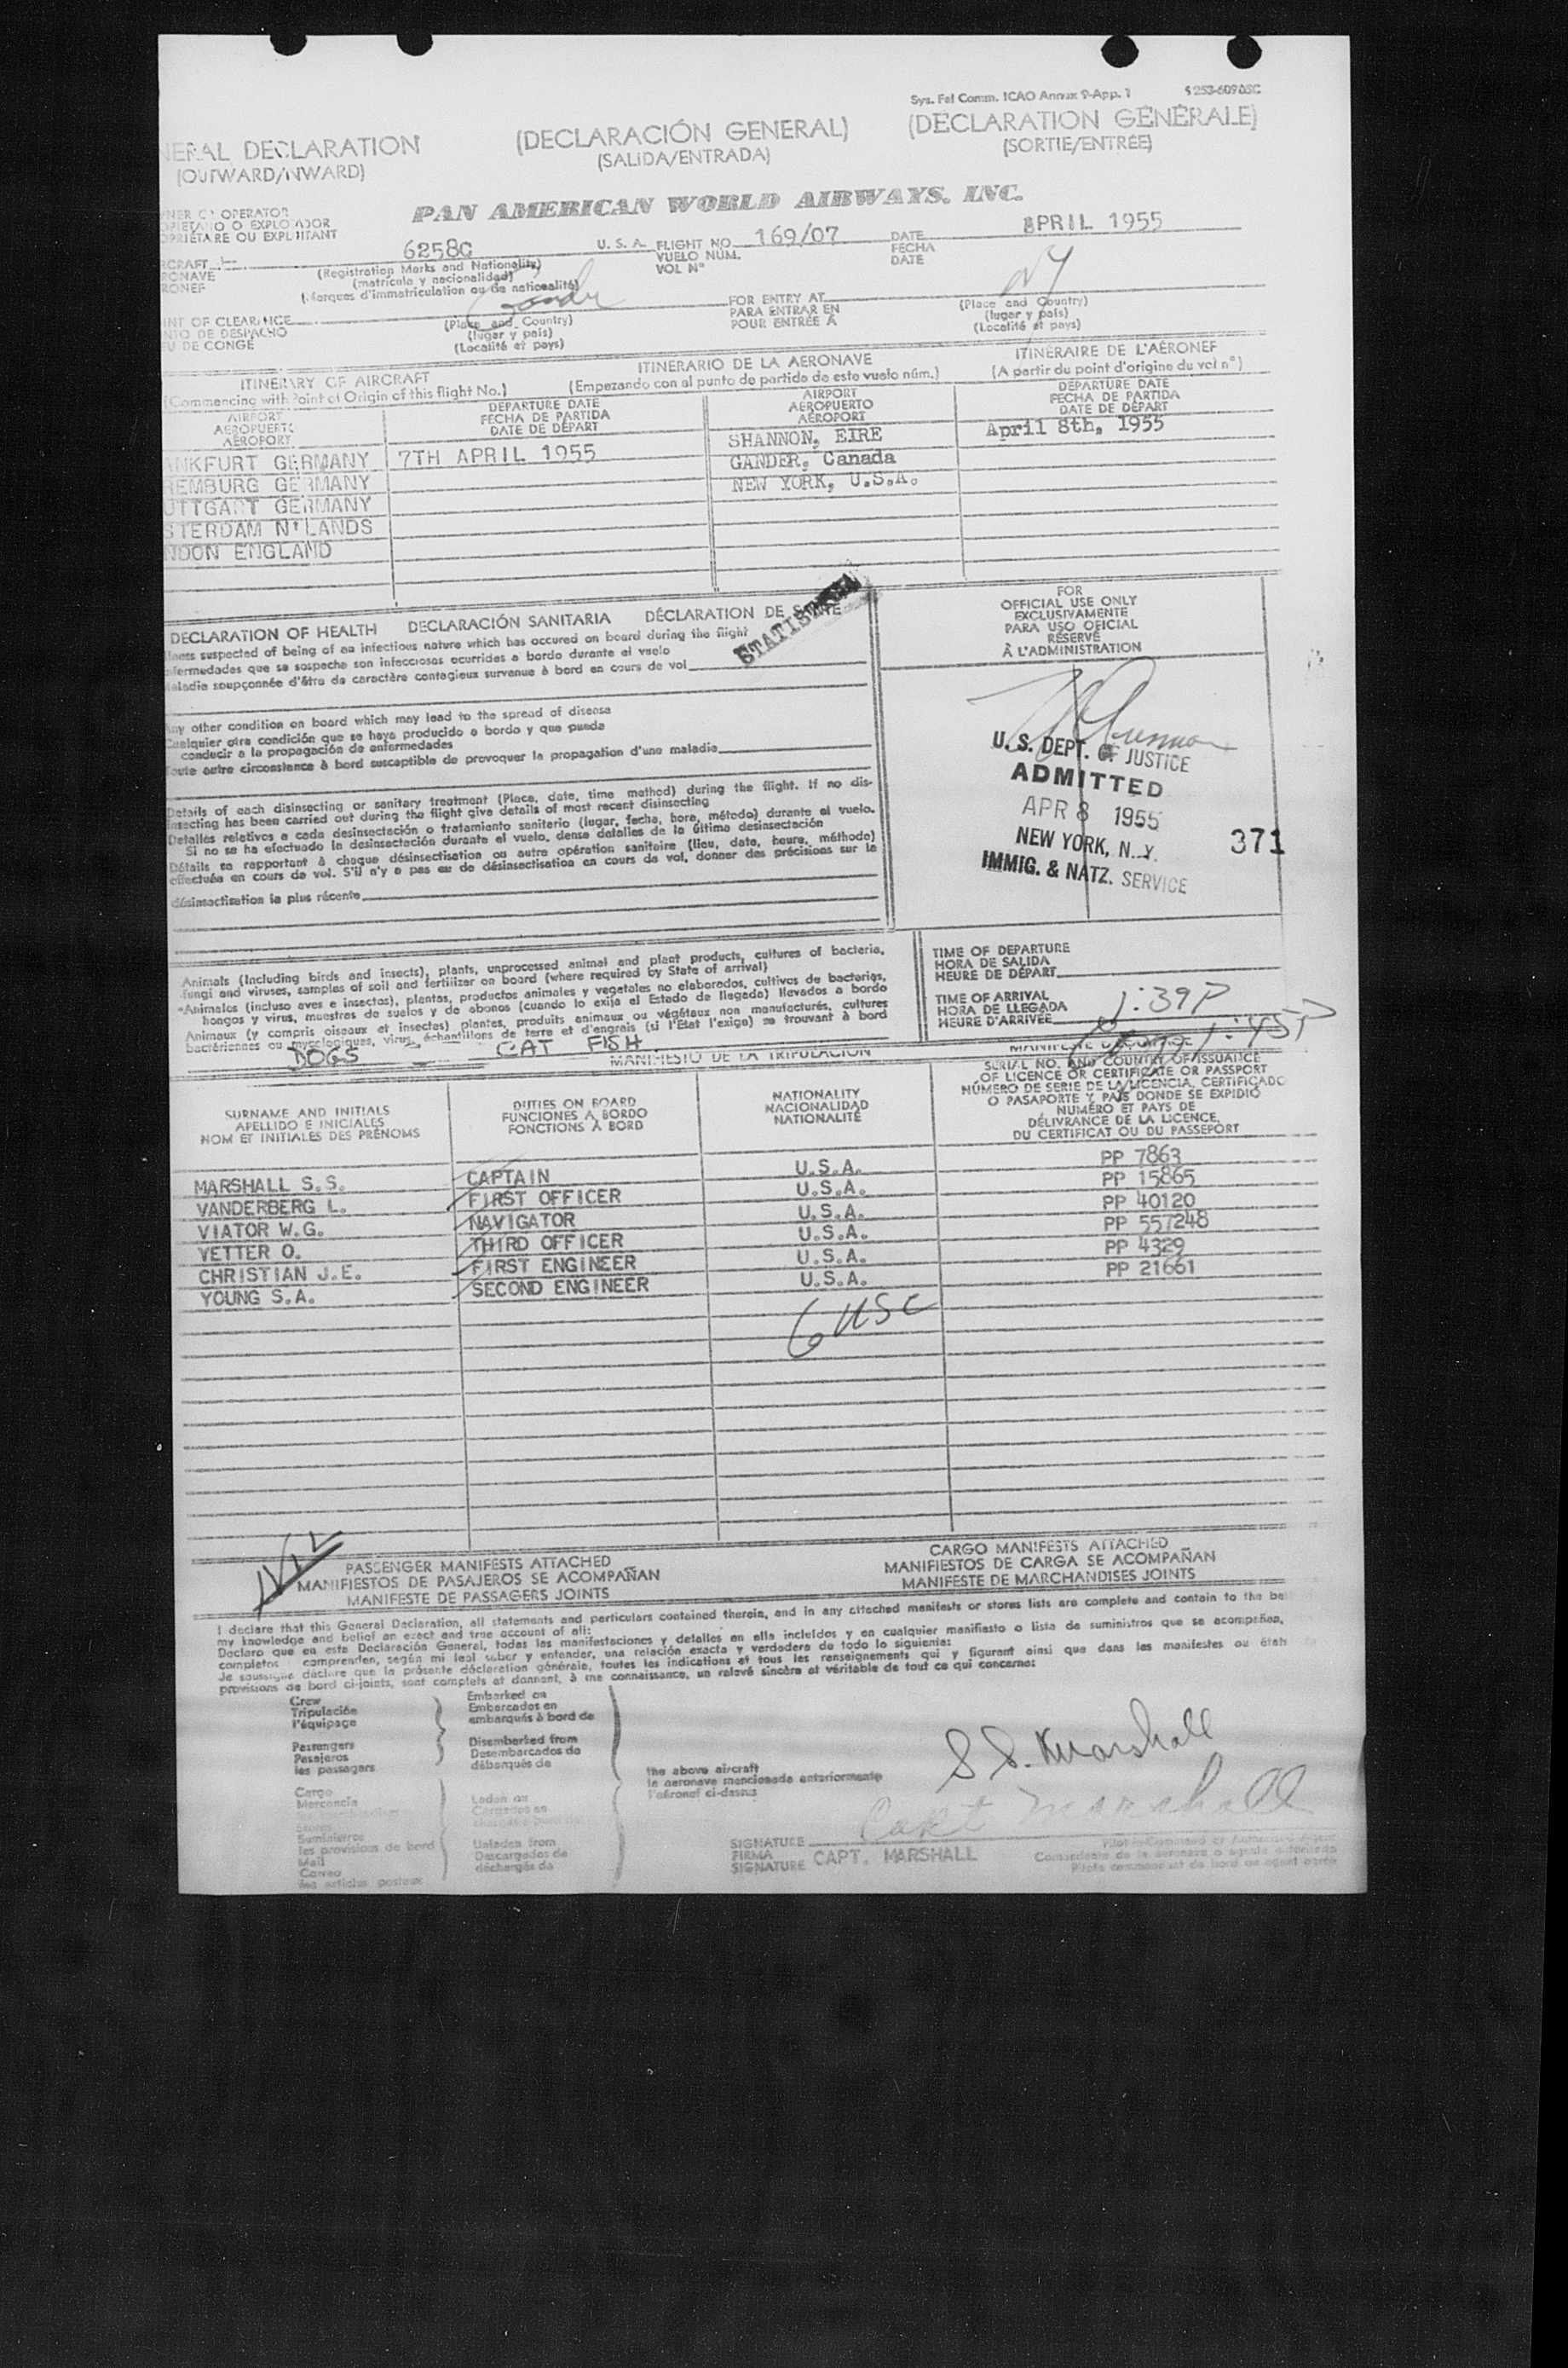 Sys. Fal Comm. ICAO Annex 9-App. 1
ERAL DECLARATION (DECLARACIÓN GENERAL) (DÉCLARATION GÉNÉRALE)
(OUTWARD/INWARD) (SALIDA/ENTRADA) (SORTIE/ENTRÉE)
PAN AMERICAN WORLD AIRWAYS, INC.
NER OR OPERATOR
PIETARIO O EXPLOTADOR
PRIÉTARE OU EXPLOITANT
6258C U. S. A. FLIGHT NO. 169/07 DATE APRIL 1955
VUELO NÚM. FECHA
VOL Nº DATE
RCRAFT
RONAVE
RONEF
(Registration Marks and Nationality)
(matrícula y nacionalidad)
(Marques d'immatriculation ou de nationalité)
NY
INT OF CLEARANCE FOR ENTRY AT
NTO DE DESPACHO PARA ENTRAR EN
U DE CONGÉ POUR ENTRÉE A
(Place and Country) (Place and Country)
(lugar y país) (lugar y país)
(Localité et pays) (Localité et pays)
ITINERARY OF AIRCRAFT ITINERARIO DE LA AERONAVE ITINÉRAIRE DE L'AÉRONEF
(Commencing with Point of Origin of this flight No.) (Empezando con al punto de partida de este vuelo núm.) (A partir du point d'origine du vol nº)
AIRPORT DEPARTURE DATE AIRPORT DEPARTURE DATE
AEROPUERTO FECHA DE PARTIDA AEROPUERTO FECHA DE PARTIDA
AÉROPORT DATE DE DÉPART AÉROPORT DATE DE DÉPART
SHANNON, EIRE April 8th, 1955
NKFURT GERMANY 7TH APRIL 1955 GANDER, Canada
REMBURG GERMANY NEW YORK, U.S.A.
UTTGART GERMANY
STERDAM N'LANDS
NDON ENGLAND
DECLARATION OF HEALTH DECLARACIÓN SANITARIA DÉCLARATION DE SANTE
lness suspected of being of an infectious nature which has occured on board during the flight
fermedades que se sospeche son infecciosas ocurridas a bordo durante el vuelo
aladie soupçonnée d'être de caractère contagieux survenue à bord en cours de vol
ny other condition on board which may lead to the spread of disease
Cualquier otra condición que se haya producido a bordo y que pueda
conducir a la propagación de enfermedades
oute autre circonstance à bord susceptible de provoquer la propagation d'une maladie
Details of each disinsecting or sanitary treatment (Place, date, time method) during the flight. If no dis-
insecting has been carried out during the flight give details of most recent disinsecting
Detalles relativos a cada desinsectación o tratamiento sanitario (lugar, fecha, hora, método) durante el vuelo.
Si no se ha efectuado la desinsectación durante el vuelo, dense detalles de la última desinsectación
Détails se rapportant à chaque désinsectisation ou autre opération sanitaire (lieu, date, heure, méthode)
effectuée en cours de vol. S'il n'y a pas eu de désinsectisation en cours de vol, donner des précisions sur la
désinsectisation la plus récente
FOR
OFFICIAL USE ONLY
EXCLUSIVAMENTE
PARA USO OFICIAL
RÉSERVÉ
À L'ADMINISTRATION
U. S. DEPT. OF JUSTICE
ADMITTED
APR 8 1955
NEW YORK, N. Y. 371
IMMIG. & NATZ. SERVICE
Animals (Including birds and insects), plants, unprocessed animal and plant products, cultures of bacteria,
fungi and viruses, samples of soil and fertilizer on board (where required by State of arrival)
Animales (incluso aves e insectos), plantas, productos animales y vegetales no elaborados, cultivos de bacterias,
hongos y virus, muestras de suelos y de abonos (cuando lo exija el Estado de llegada) llevados a bordo
Animaux (y compris oiseaux et insectes) plantes, produits animaux ou végétaux non manufacturés, cultures
bactériennes ou mycologiques, virus, échantillons de terre et d'engrais (si l'État l'exige) se trouvant à bord
DOGS CAT FISH
TIME OF DEPARTURE
HORA DE SALIDA
HEURE DE DÉPART
TIME OF ARRIVAL 1:39P
HORA DE LLEGADA
HEURE D'ARRIVÉE 1:45P
MANIFIESTO DE LA TRIPULACIÓN
SURNAME AND INITIALS
APELLIDO E INICIALES
NOM ET INITIALES DES PRÉNOMS
DUTIES ON BOARD
FUNCIONES A BORDO
FONCTIONS À BORD
NATIONALITY
NACIONALIDAD
NATIONALITÉ
SERIAL NO. AND COUNTRY OF ISSUANCE
OF LICENCE OR CERTIFICATE OR PASSPORT
NÚMERO DE SERIE DE LA LICENCIA, CERTIFICADO
O PASAPORTE Y PAÍS DONDE SE EXPIDIÓ
NUMÉRO ET PAYS DE
DÉLIVRANCE DE LA LICENCE
DU CERTIFICAT OU DU PASSEPORT
MARSHALL S.S. CAPTAIN U.S.A. PP 7863
VANDERBERG L. FIRST OFFICER U.S.A. PP 15865
VIATOR W.G. NAVIGATOR U.S.A. PP 40120
VETTER O. THIRD OFFICER U.S.A. PP 557248
CHRISTIAN J.E. FIRST ENGINEER U.S.A. PP 4329
YOUNG S.A. SECOND ENGINEER U.S.A. PP 21661
6 USC
PASSENGER MANIFESTS ATTACHED CARGO MANIFESTS ATTACHED
MANIFIESTOS DE PASAJEROS SE ACOMPAÑAN MANIFIESTOS DE CARGA SE ACOMPAÑAN
MANIFESTE DE PASSAGERS JOINTS MANIFESTE DE MARCHANDISES JOINTS
I declare that this General Declaration, all statements and particulars contained therein, and in any attached manifests or stores lists are complete and contain to the be
my knowledge and belief an exact and true account of all:
Declaro que en esta Declaración General, todas las manifestaciones y detalles en ella incleídos y en cualquier manifiesto o lista de suministros que se acompañan,
completos comprenden, según mi leal saber y entender, una relación exacta y verdadera de todo lo siguiente:
Je soussigné déclare que la présente déclaration générale, toutes les indications et tous les renseignements qui y figurent ainsi que dans les manifestes ou états
provisions de bord ci-joints, sont complets et donnent, à ma connaissance, un relevé sincère et véritable de tout ce qui concerne:
Crew Embarked on
Tripulación Embarcados en
l'équipage embarqués à bord de
Passengers Disembarked from
Pasajeros Desembarcados de
les passagers débarqués de
the above aircraft
la aeronave mencionada anteriormente
l'aéronef ci-dessus
Cargo Laden on
Mercancía Cargados en
Suministros
les provisions de bord Unladen from
Mail Descargados de
Correo déchargés de
les articles postaux
S S. Marshall
Capt Marshall
SIGNATURE
FIRMA CAPT. MARSHALL
SIGNATURE